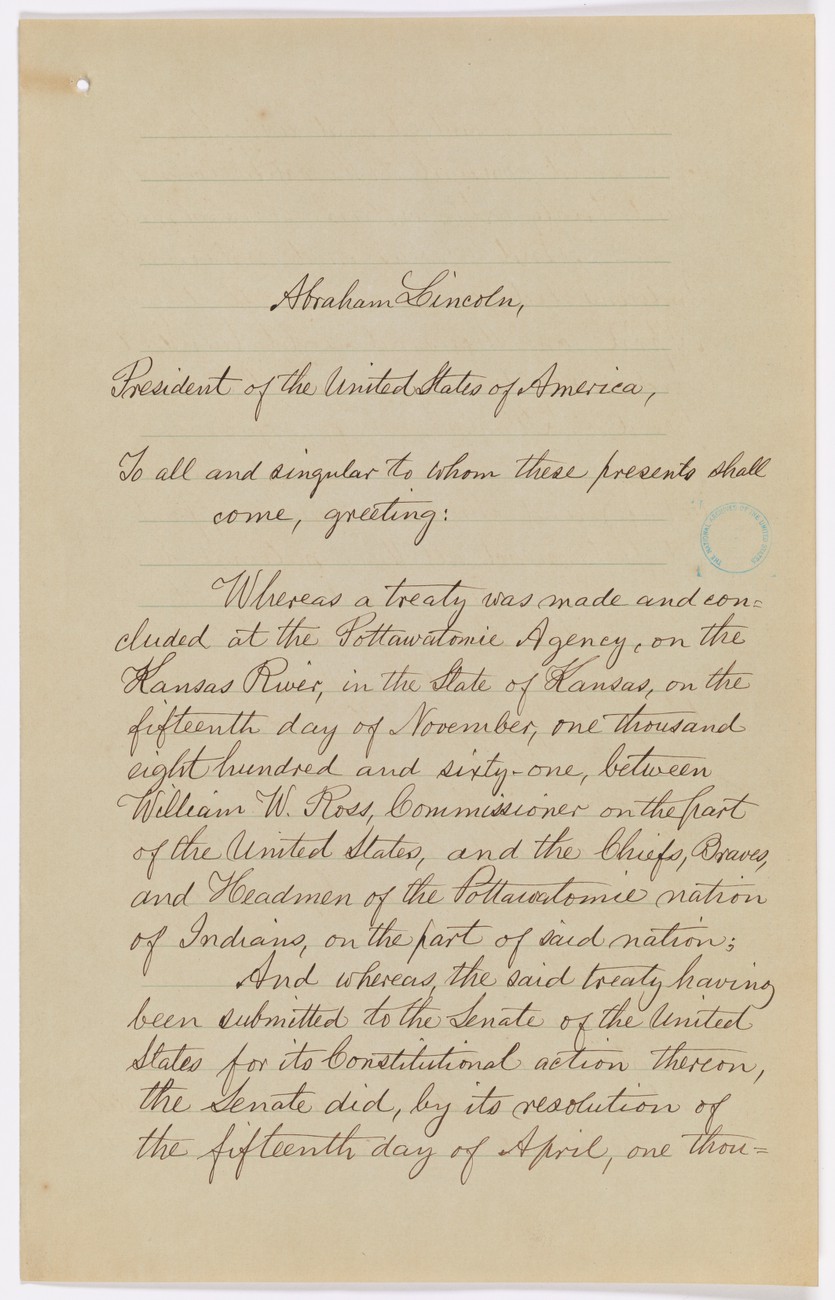 Abraham Lincoln,
President of the United States of America,
To all and singular to whom these presents shall
come, greeting:
THE NATIONAL ARCHIVES OF THE UNITED STATES
Whereas a treaty was made and con=
cluded at the Pottawatomie Agency, on the
Kansas River, in the State of Kansas, on the
fifteenth day of November, one thousand
eight hundred and sixty-one, between
William W. Ross, Commissioner on the part
of the United States, and the Chiefs, Braves,
and Headmen of the Pottawatomie nation
of Indians, on the part of said nation;
And whereas, the said treaty having
been submitted to the Senate of the United
States for its Constitutional action thereon,
the Senate did, by its resolution of
the fifteenth day of April, one thou=